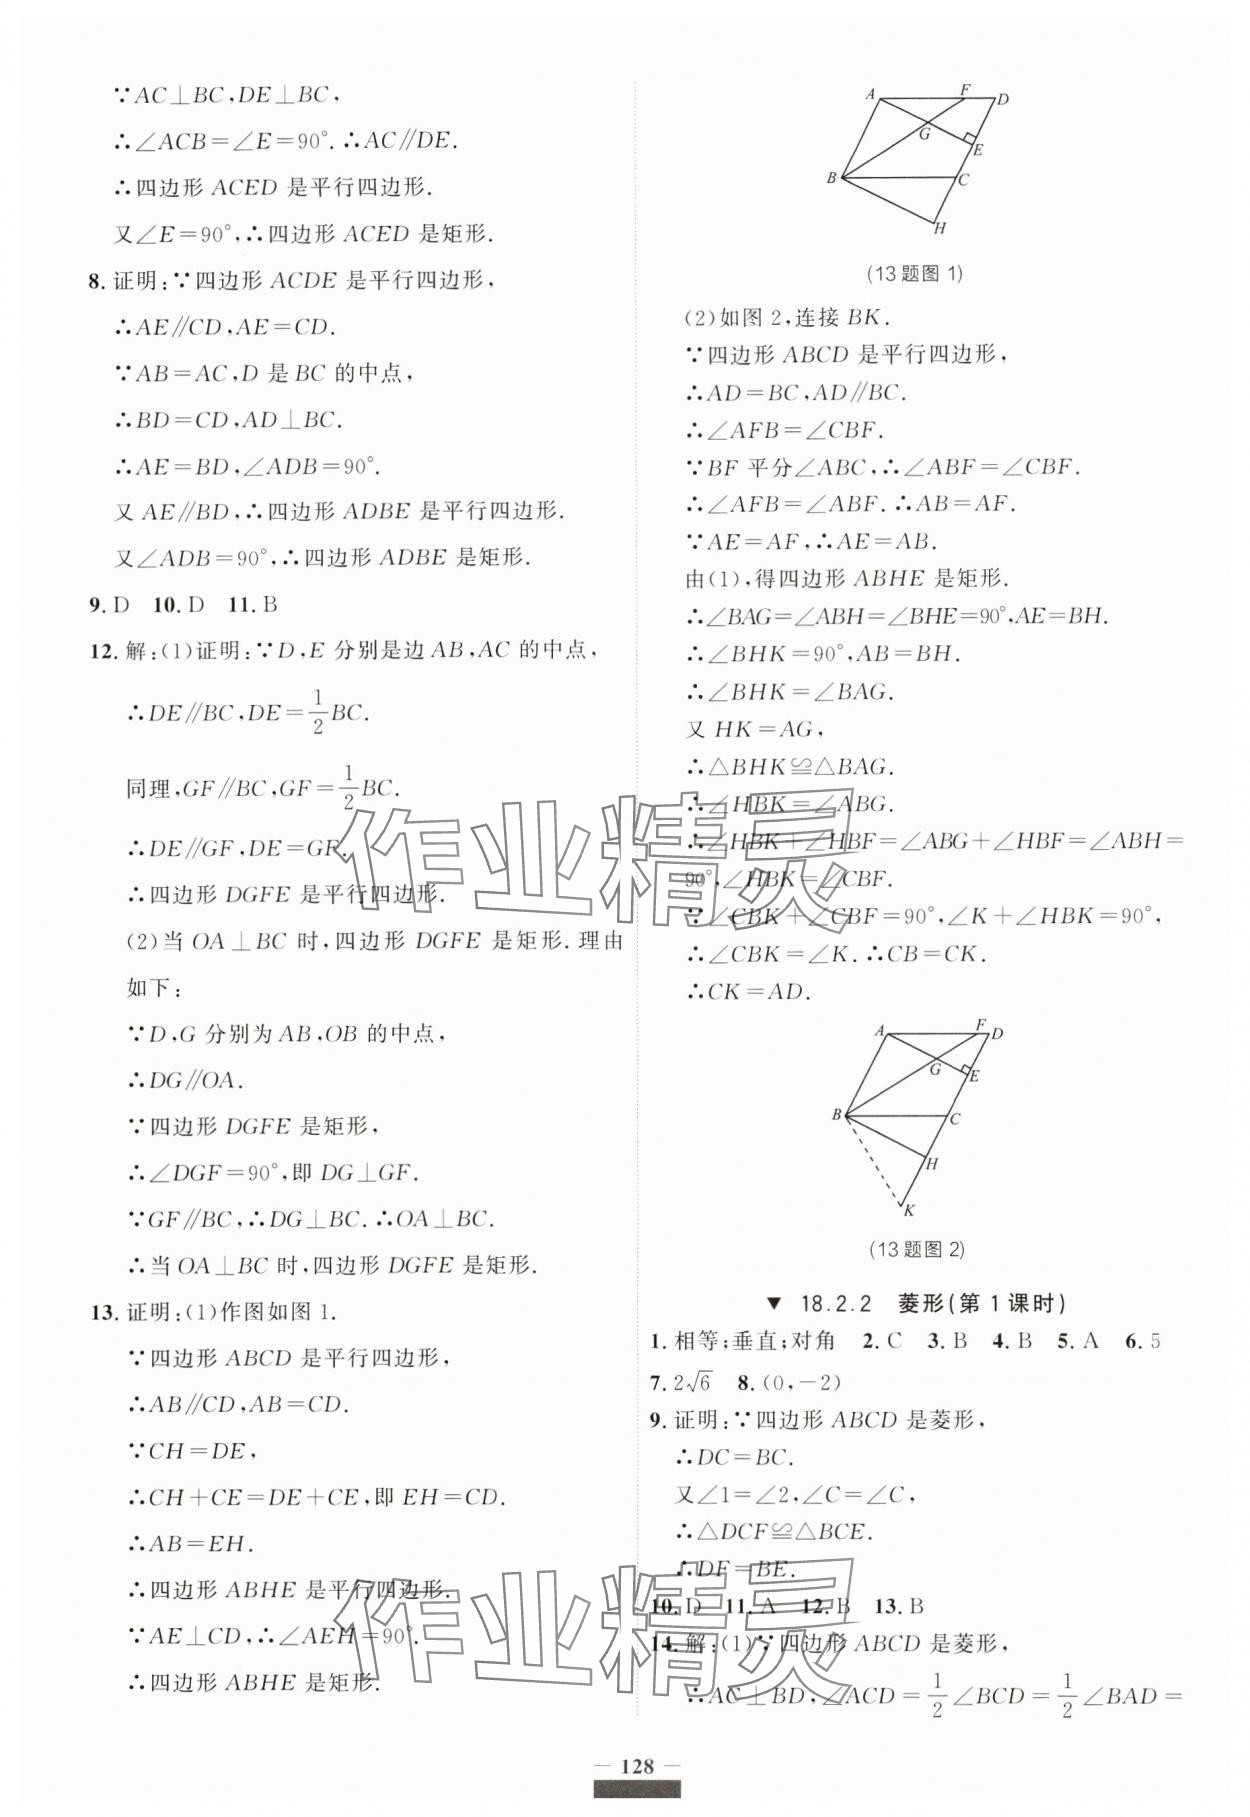 ∵AC⊥BC,DE⊥BC,
∴∠ACB=∠E=90°.∴AC∥DE.
∴四边形 ACED 是平行四边形.
又∠E=90°,∴四边形 ACED 是矩形.
8.证明:∵四边形 ACDE 是平行四边形,
∴AE∥CD,AE=CD.
∵AB=AC,D 是 BC 的中点,
∴BD=CD,AD⊥BC.
∴AE=BD,∠ADB=90°.
又 AE∥BD,∴四边形 ADBE 是平行四边形.
又∠ADB=90°,∴四边形 ADBE 是矩形.
9.D 10.D 11.B
12.解:(1)证明:∵D,E 分别是边 AB,AC 的中点,
∴DE∥BC,DE=1/2BC.
同理,GF∥BC,GF=1/2BC.
∴DE∥GF,DE=GF.
∴四边形 DGFE 是平行四边形.
(2)当 OA⊥BC 时,四边形 DGFE 是矩形.理由
如下:
∵D,G 分别为 AB,OB 的中点,
∴DG∥OA.
∵四边形 DGFE 是矩形,
∴∠DGF=90°,即 DG⊥GF.
∵GF∥BC,∴DG⊥BC.∴OA⊥BC.
∴当 OA⊥BC 时,四边形 DGFE 是矩形.
13.证明:(1)作图如图 1.
∵四边形 ABCD 是平行四边形,
∴AB∥CD,AB=CD.
∵CH=DE,
∴CH+CE=DE+CE,即 EH=CD.
∴AB=EH.
∴四边形 ABHE 是平行四边形.
∵AE⊥CD,∴∠AEH=90°.
∴四边形 ABHE 是矩形.
A F D
G E
B C
H
(13题图 1)
(2)如图 2,连接 BK.
∵四边形 ABCD 是平行四边形,
∴AD=BC,AD∥BC.
∴∠AFB=∠CBF.
∵BF 平分∠ABC,∴∠ABF=∠CBF.
∴∠AFB=∠ABF.∴AB=AF.
∵AE=AF,∴AE=AB.
由(1),得四边形 ABHE 是矩形.
∴∠BAG=∠ABH=∠BHE=90°,AE=BH.
∴∠BHK=90°,AB=BH.
∴∠BHK=∠BAG.
又 HK=AG,
∴△BHK≌△BAG.
∴∠HBK=∠ABG.
∴∠HBK+∠HBF=∠ABG+∠HBF=∠ABH=
90°,∠HBK=∠CBF.
∵∠CBK+∠CBF=90°,∠K+∠HBK=90°,
∴∠CBK=∠K.∴CB=CK.
∴CK=AD.
A F D
G E
B C
H
K
(13题图 2)
▼ 18.2.2 菱形(第 1 课时)
1.相等;垂直;对角 2.C 3.B 4.B 5.A 6.5
7.2√6 8.(0,-2)
9.证明:∵四边形 ABCD 是菱形,
∴DC=BC.
又∠1=∠2,∠C=∠C,
∴△DCF≌△BCE.
∴DF=BE.
10.D 11.A 12.B 13.B
14.解:(1)∵四边形 ABCD 是菱形,
∴AC⊥BD,∠ACD=1/2∠BCD=1/2∠BAD=
— 128 —
作业精灵
作业精灵